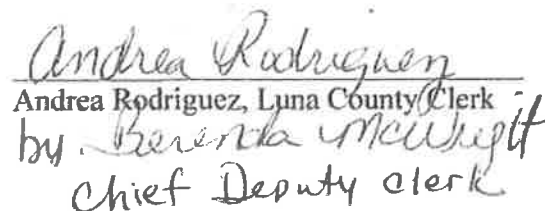 Andrea Rodriguez
Andrea Rodriguez, Luna County Clerk
by. Berenda McWright
Chief Deputy clerk